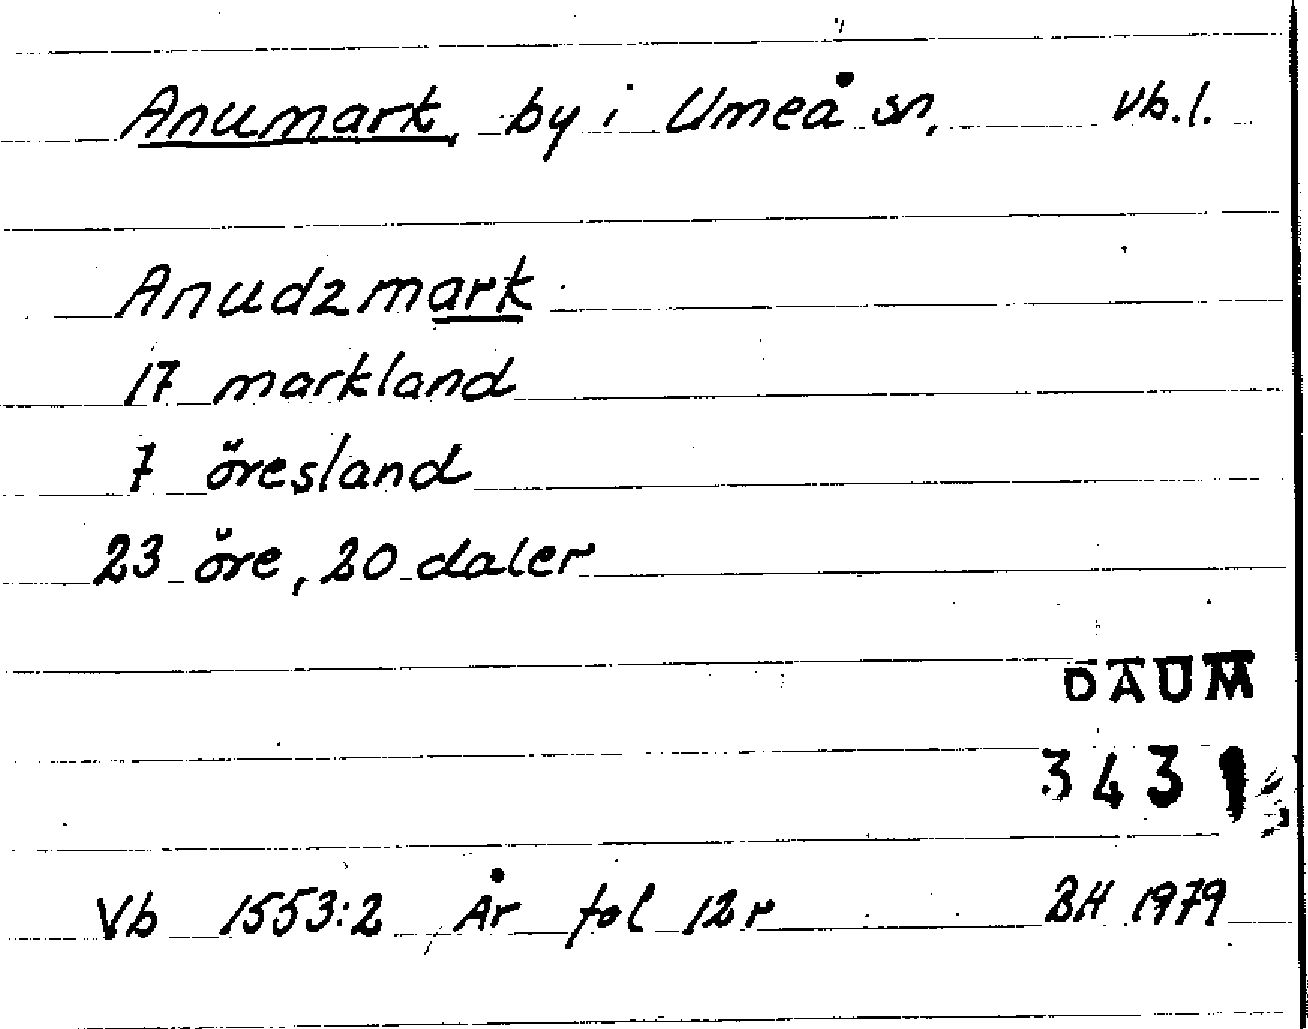 Anumark, by i Umeå sn, vb.l.
Anudzmark
17 markland
7 öresland
23 öre, 20 daler
DAUM
343
Vb 1553:2 År fol 12r BH 1979